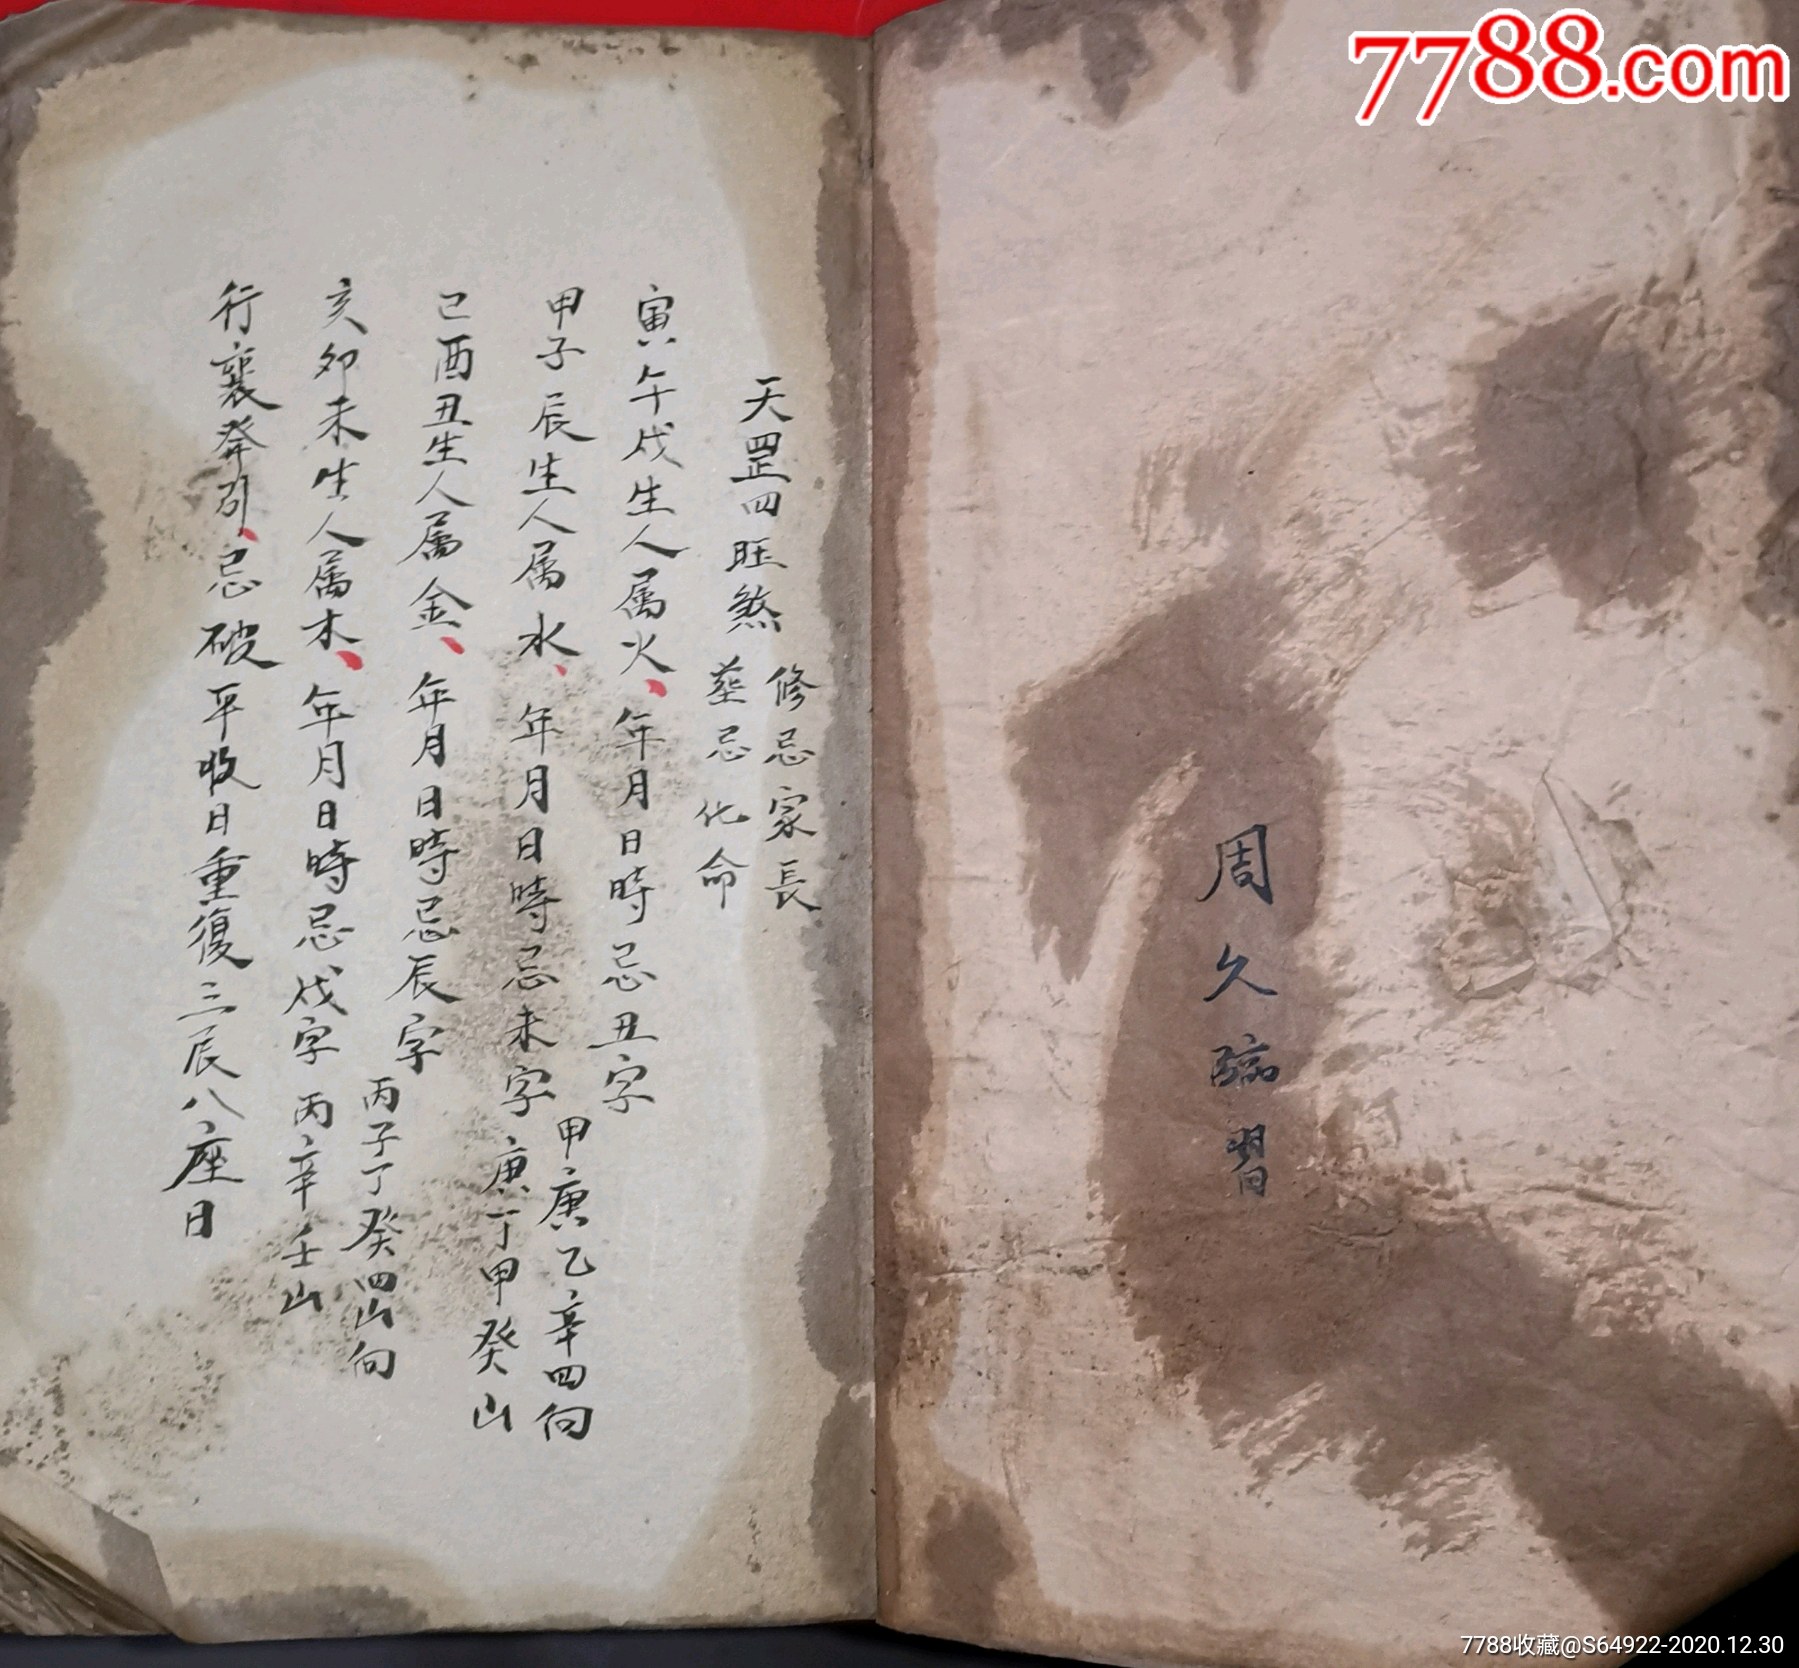 7788.com
周久臨習
天罡四旺煞 修忌家長
葬忌化命
寅午戌生人属火、年月日時忌丑字 甲庚乙辛四向
甲子辰生人属水、年月日時忌未字 庚丁甲癸山
己酉丑生人属金、年月日時忌辰字 丙子丁癸四山向
亥卯未生人属木、年月日時忌戌字 丙辛壬山
行襄發引、忌破平收日重復三辰八座日
7788收藏@S64922-2020.12.30